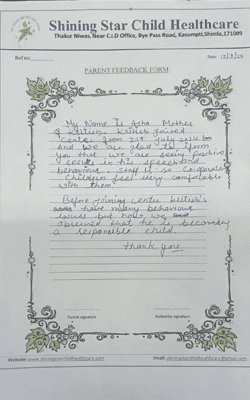 Shining Star Child Healthcare
Thakur Niwas, Near C.I.D Office, Bye Pass Road, Kasumpti, Shimla, 171009
Ref no:
Date:
PARENT FEEDBACK FORM
My Name Is Asha Mother
of Kritish. Kritish joined
center from 21st July
and we are glad to
you that we are seeing positive
results in his speech and
behaviour. staff is so cooperative
children feel very comfortable
with them.
Before Joining center Kritish's
have many behaviour
issues but now we
observed that he is becoming
a responsible child.
Thank you
Format signature
Authority signature
Website: www.shiningstarchildhealthcare.com
Email: shiningstarchildhealthcare@gmail.com